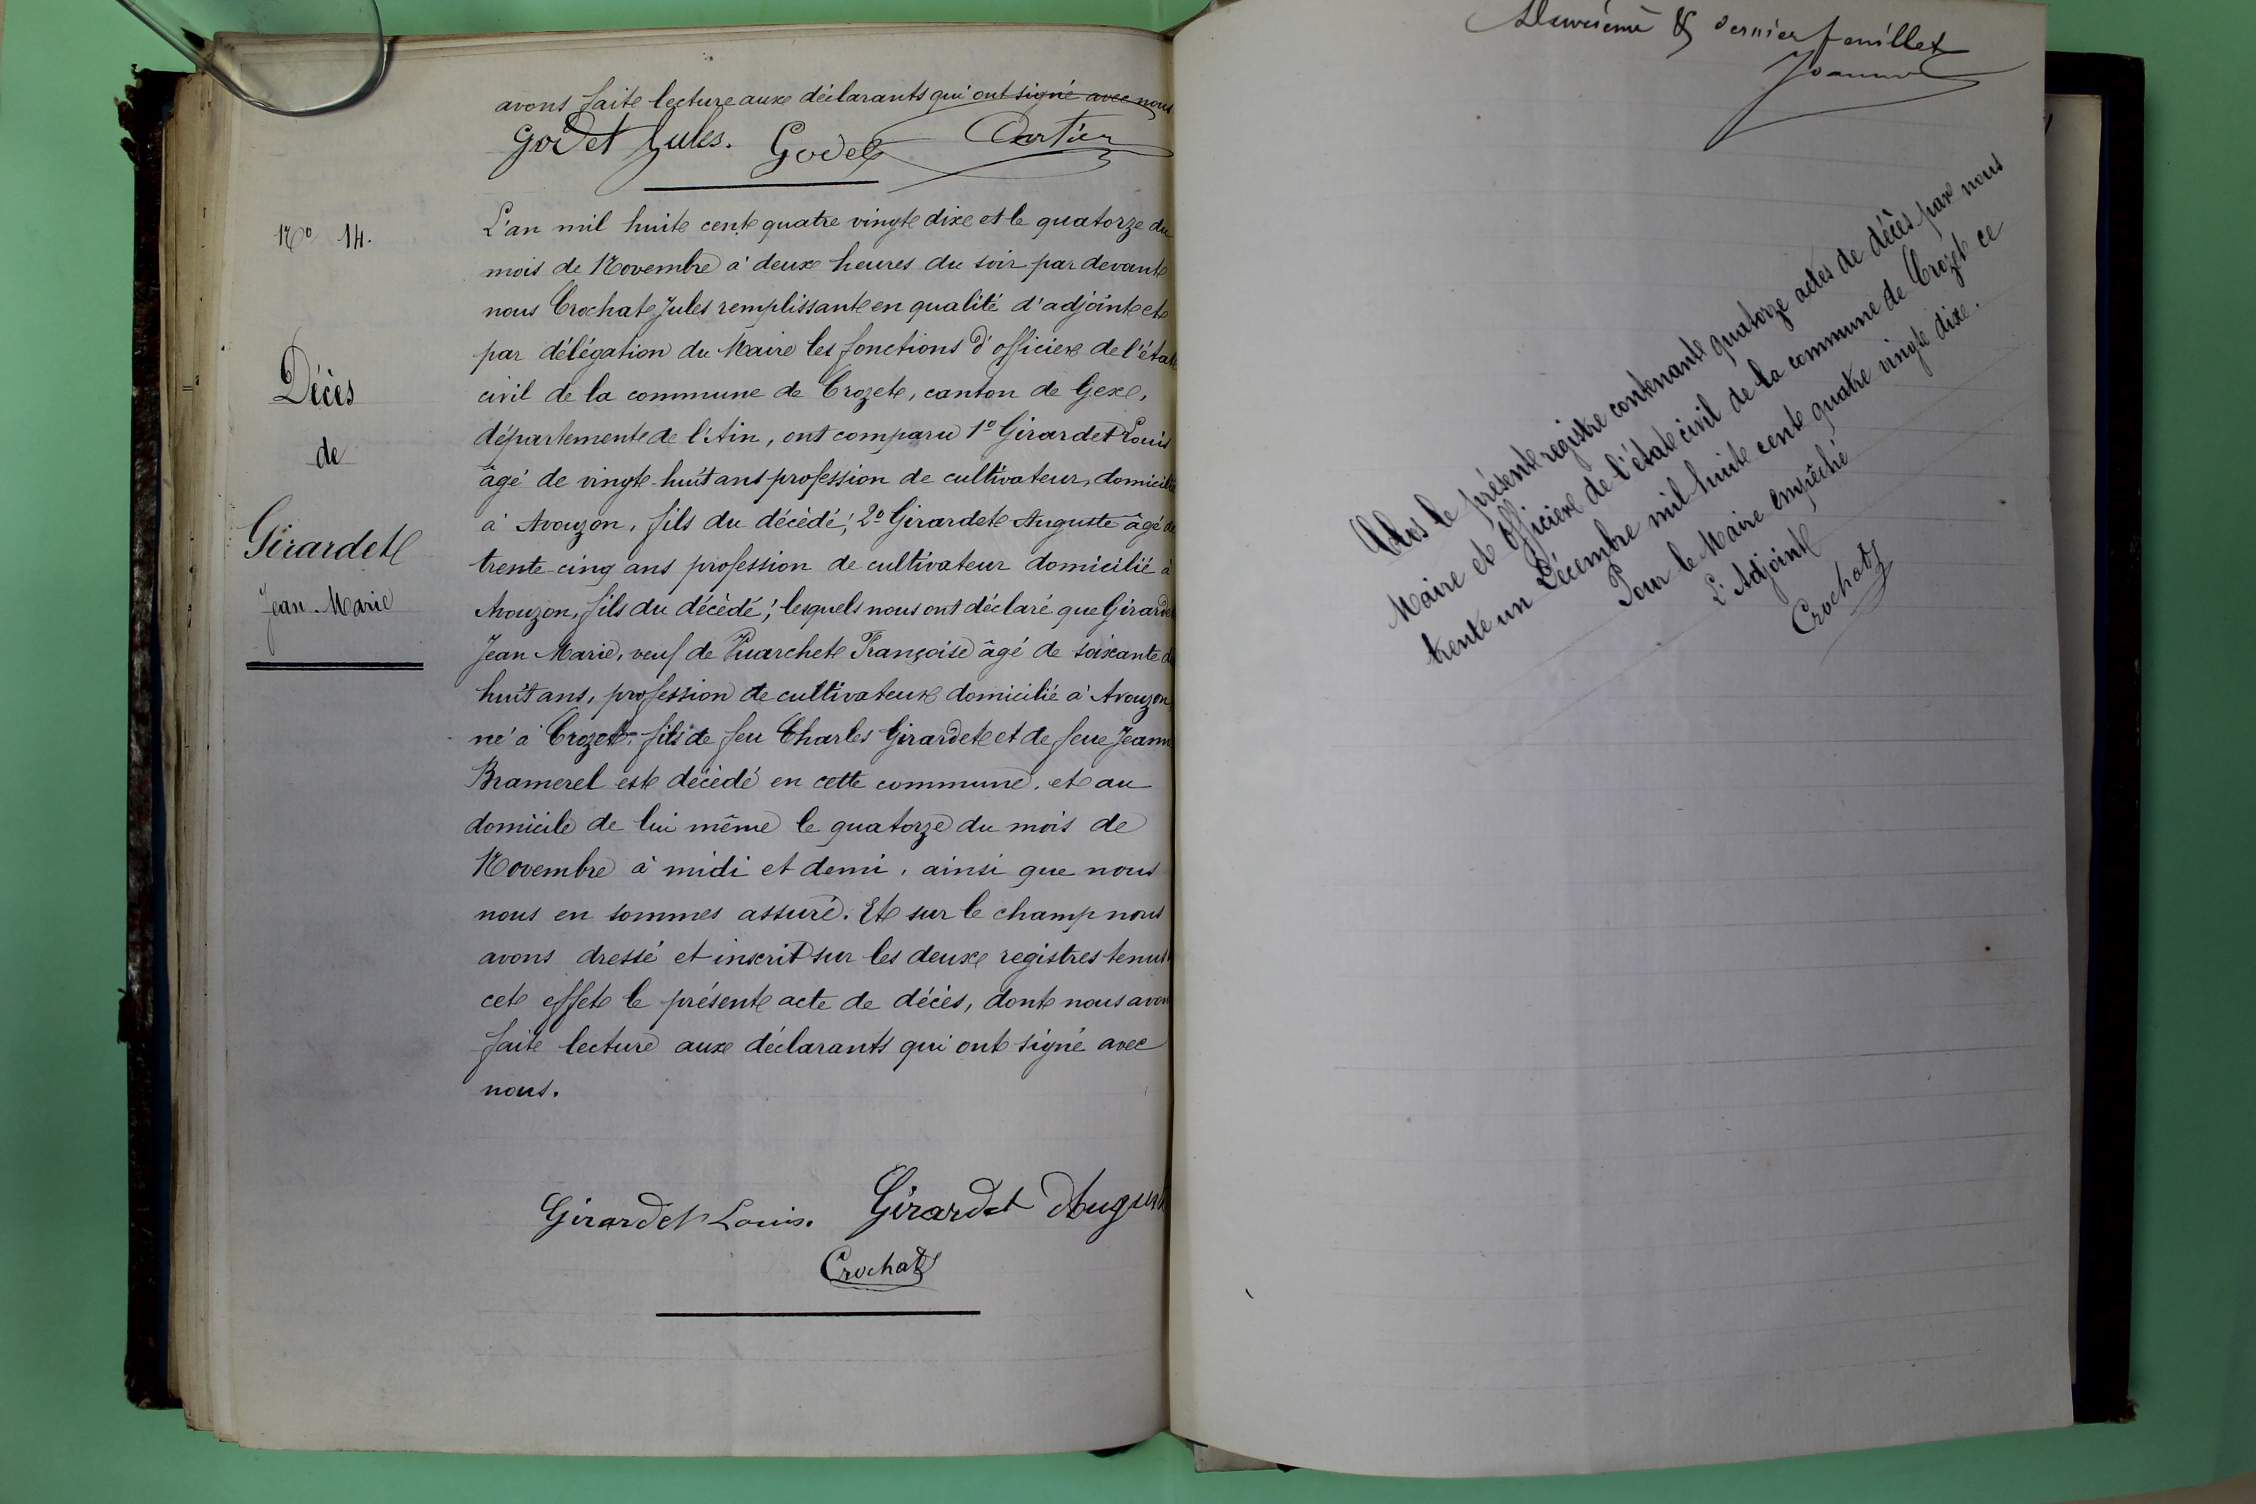 avons fait lecture aux déclarants qui ont signé avec nous
Godet Jules. Godet
N° 14.
L'an mil huit cent quatre vingt dix et le quatorze du
mois de Novembre à deux heures du soir par devant
nous Crochat Jules remplissant en qualité d'adjoint et
par délégation du Maire les fonctions d'officier de l'état
civil de la commune de Crozet, canton de Gex,
département de l'Ain, ont comparu 1° Girardet Louis
âgé de vingt-huit ans profession de cultivateur, domicilié
à Avouzon, fils du décédé; 2° Girardet Auguste âgé de
trente-cinq ans profession de cultivateur domicilié à
Avouzon, fils du décédé; lesquels nous ont déclaré que Girardet
Jean Marie, veuf de Françoise âgé de soixante
huit ans, profession de cultivateur domicilié à Avouzon
né à Crozet, fils de feu Charles Girardet et de feue Jeanne
Bramerel est décédé en cette commune, et au
domicile de lui même le quatorze du mois de
Novembre à midi et demi, ainsi que nous
nous en sommes assuré. Et sur le champ nous
avons dressé et inscrit sur les deux registres tenus
cet effet le présent acte de décès, dont nous avons
fait lecture aux déclarants qui ont signé avec
nous.
Girardet Louis. Girardet Auguste
Crochat
Décès
de
Girardet
Jean-Marie
& dernier feuillet
Clos le présent registre contenant quatorze actes de décès par nous
Maire et Officier de l'état civil de la commune de Crozet ce
trente un Décembre mil huit cent quatre vingt dix.
Pour le Maire empêché
L'Adjoint
Crochat